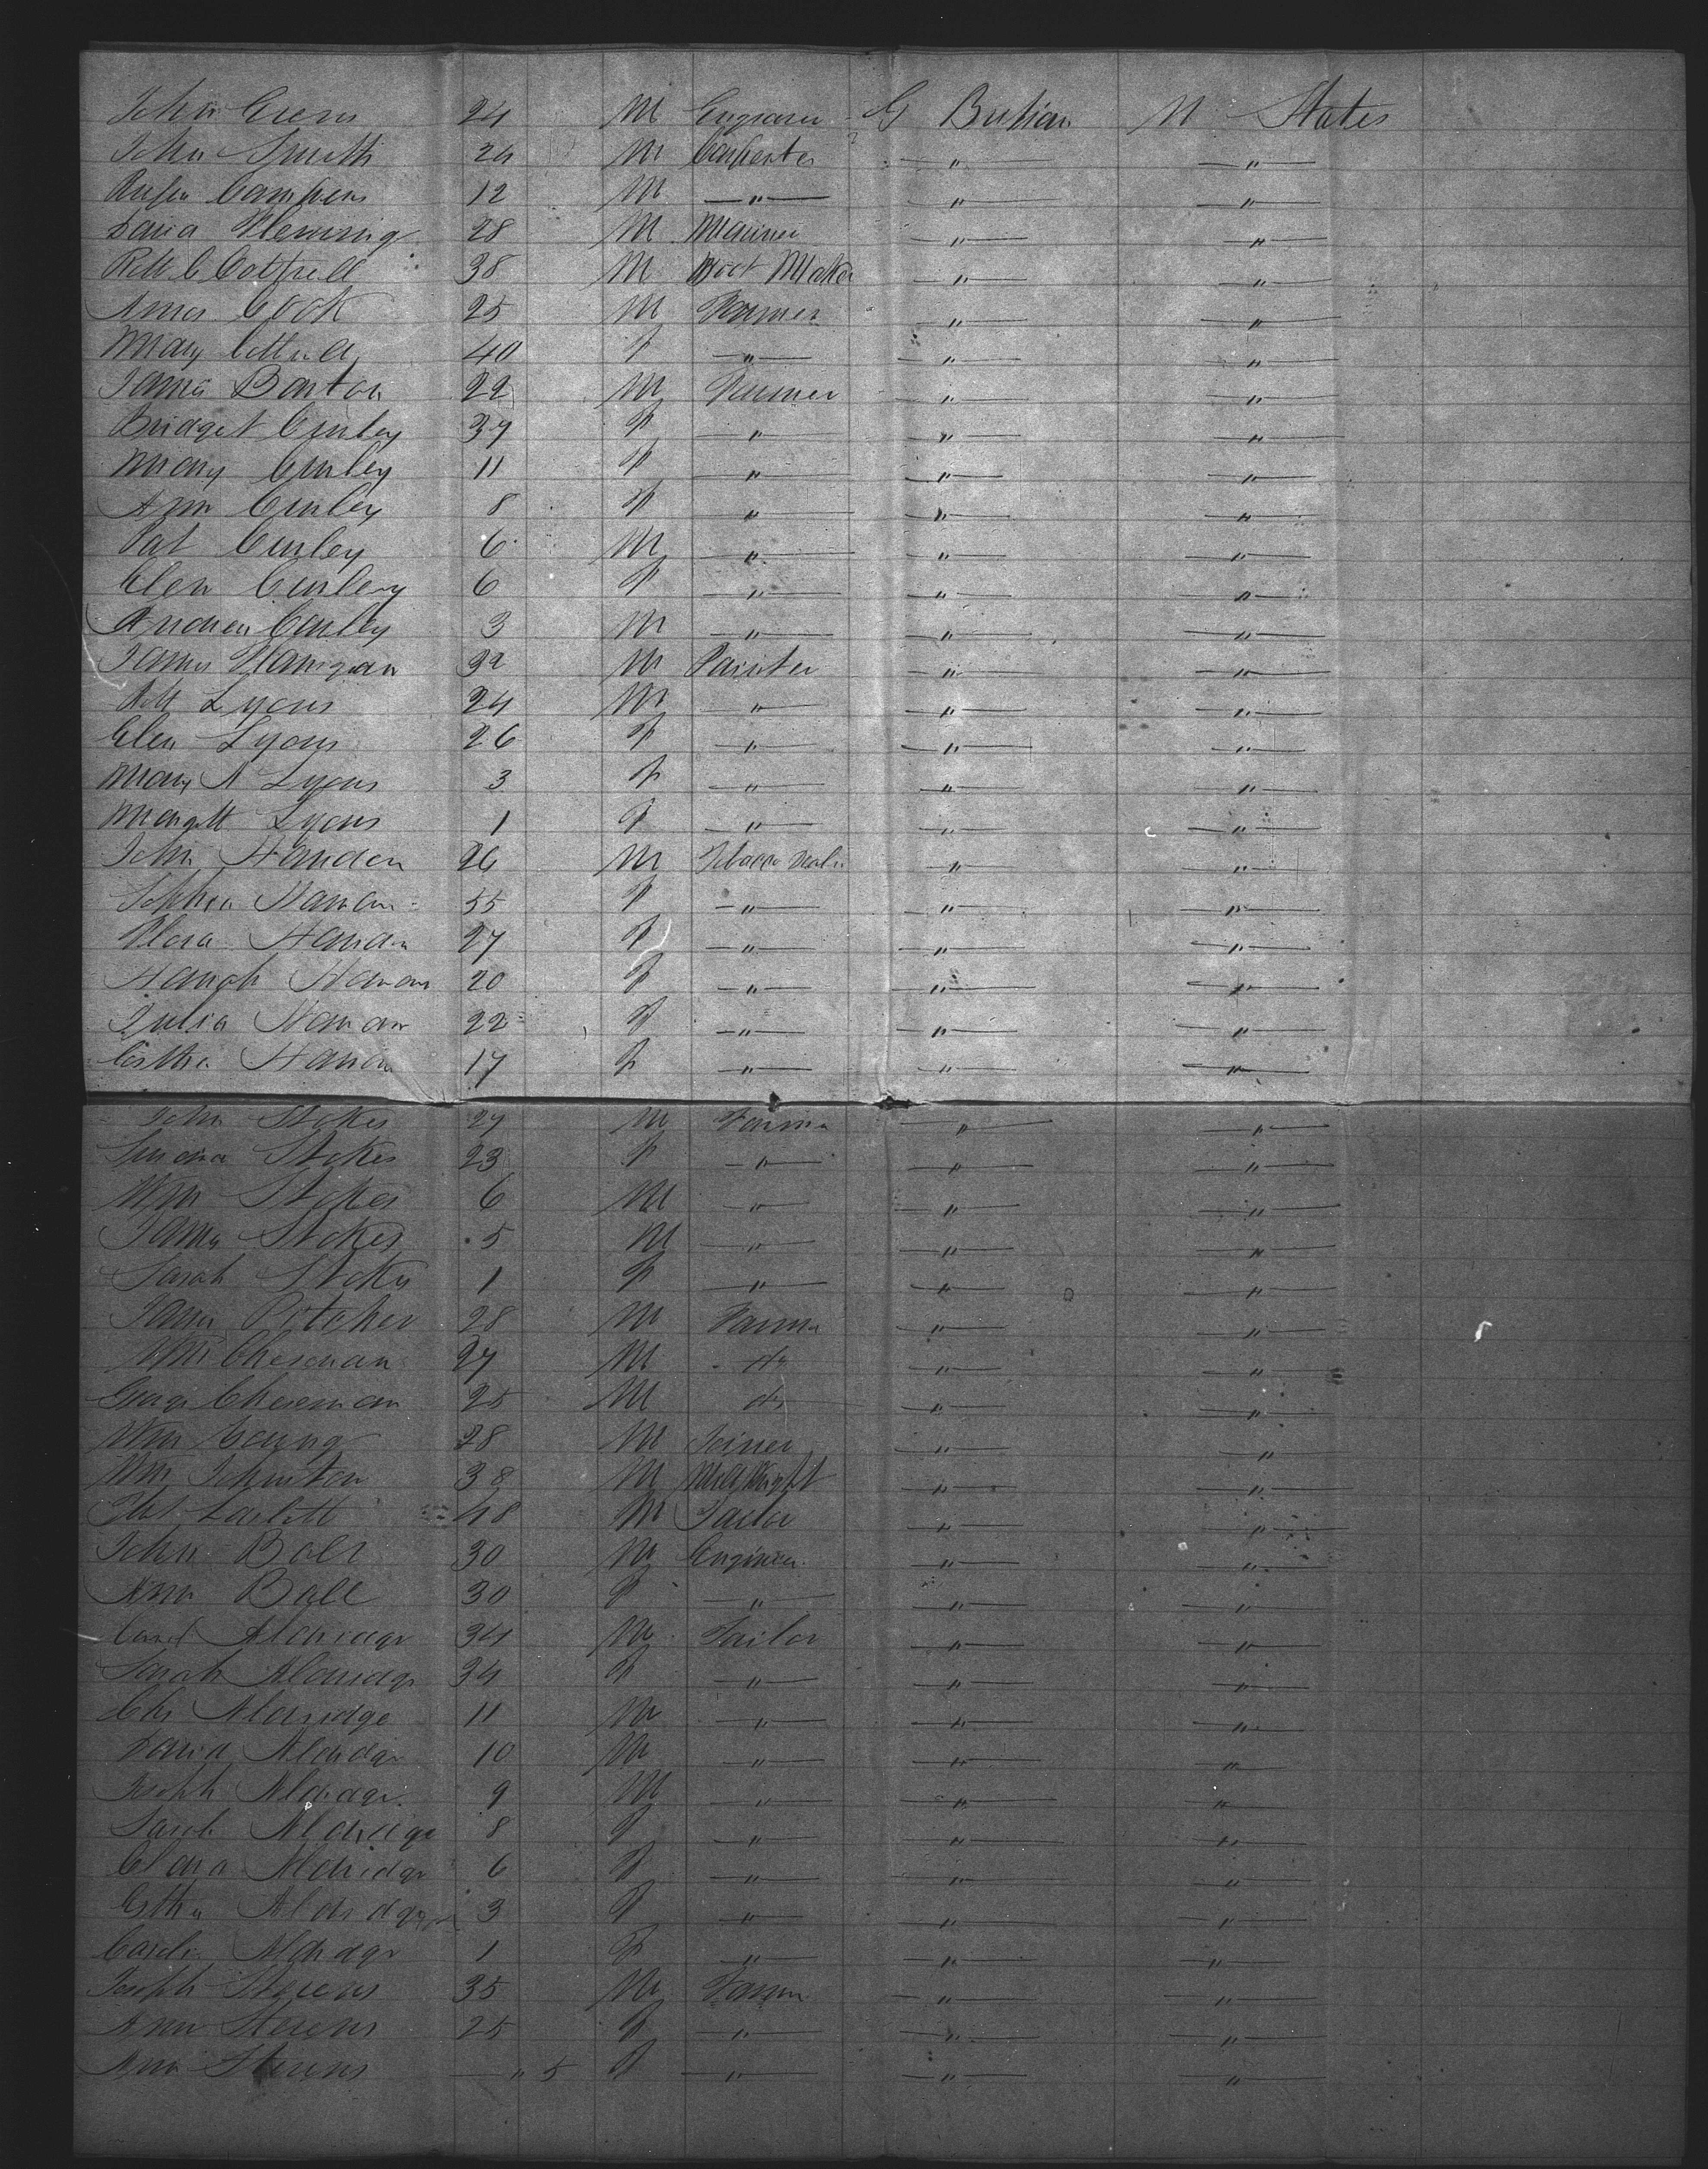 John Evens 24 M Engraver G Britian U States
John Smith 24 M Carpenter " "
12 M " " "
David Flemming 28 M Mariner " "
Robt C Cottrell 38 M Boot Maker " "
Amos Cook 25 M Farmer " "
Mary Cottrell 40 F " " "
James Barton 22 M Farmer " "
Bridget Curley 37 F " " "
Mary Curley 11 F " " "
Ann Curley 8 F " " "
Pat Curley 6 M " " "
Elen Curley 6 F " " "
Andrew Curley 3 M " " "
James Flanigan 32 M Painter " "
Robt Lyons 24 M " " "
Elen Lyons 26 F " " "
Mary A Lyons 3 F " " "
Margtt Lyons 1 F " " "
John 26 M Tobacco Deale " "
Sophia 55 F " " "
Flora 27 F " " "
Hanah 20 F " " "
Julia 22 F " " "
Esther 17 F " " "
John Stokes 27 M Farmer " "
Stokes 23 F " " "
Wm Stokes 6 M " " "
James Stokes 5 M " " "
Sarah Stokes 1 F " " "
James Pitcher 28 M Farmer " "
Wm Cheseman 27 M do " "
George Cheseman 25 M do " "
Wm Young 28 M Joiner " "
Wm Johnston 38 M Millwright " "
48 M Tailor " "
John Ball 30 M Engineer " "
Ann Ball 30 F " " "
Aldridge 34 M Tailor " "
Sarah Aldridge 34 F " " "
Chs Aldridge 11 M " " "
David Aldridge 10 M " " "
Joseph Aldridge 9 M " " "
Sarah Aldridge 8 F " " "
Clara Aldridge 6 F " " "
Esther Aldridge 3 F " " "
Aldridge 1 F " " "
Joseph Stevens 35 M Farmer " "
Ann Stevens 25 F " " "
Ann Stevens " 5 F " " "